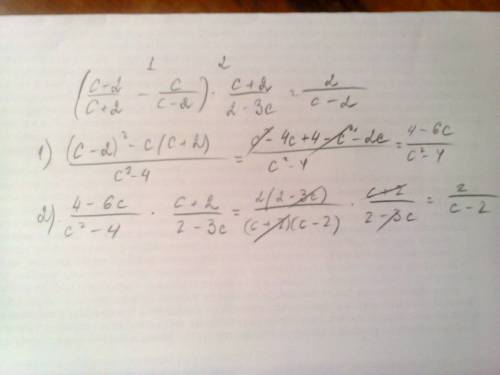 1 2
(c-2/c+2 - c/c-2) · c+2/2-3c = 2/c-2
1) (c-2)² - c(c+2)/c²-4 = c²-4c+4-c²-2c/c²-4 = 4-6c/c²-4
2) 4-6c/c²-4 · c+2/2-3c = 2(2-3c)/(c+2)(c-2) · c+2/2-3c = 2/c-2